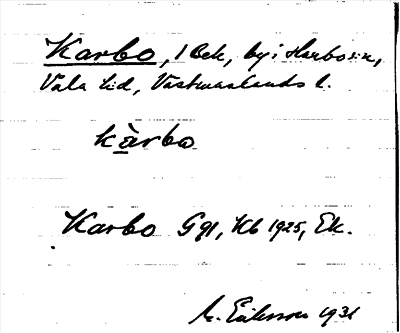 Karbo, 1 Bek, by i Harbo sn,
Vala hd, Västmanlands l.
kàrbo
Karbo Ggl, Kb 1925, Ek.
Eriksson 1931